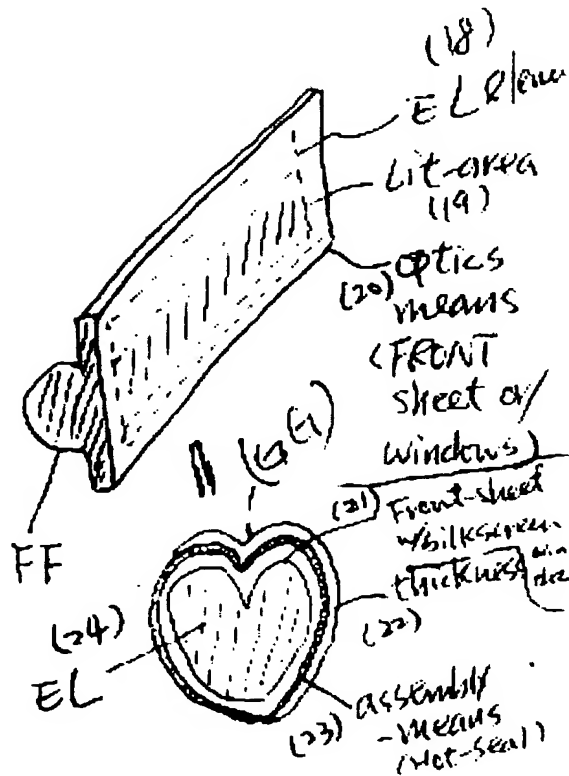 (18)
EL
Lit-area
(19)
(20) optics
means
(FRONT
sheet or
windows)
FF
(21) Front-sheet
w/silkscreen
thickness
(22)
(24)
EL
(23) assembly
-means
(Hot-Seal)